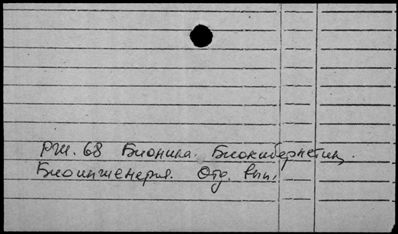 РЖ. 68 Бионика. Биокибернетик.
Биоинженерия. Отд. вып.